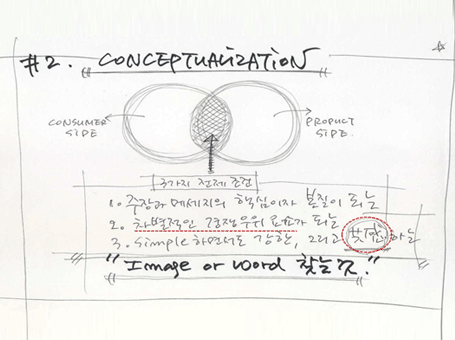 #2. CONCEPTUALIZATION
CONSUMER SIDE
PRODUCT SIDE.
3가지 전제 조건
1. 주장과 메세지의 핵심이자 본질이 되는
2. 차별적인 경쟁우위 요소가 되는
3. Simple하면서도 강한, 그리고 하는
"Image or word 찾는 것."